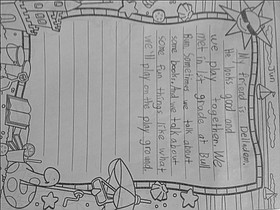 June
My friend is Delleden.
He looks good and
we play together. We
met in 1st grade at Ball
Bun. Sometimes we talk about
some books. And we talk about
some fun things like what
we'll play on the play ground.